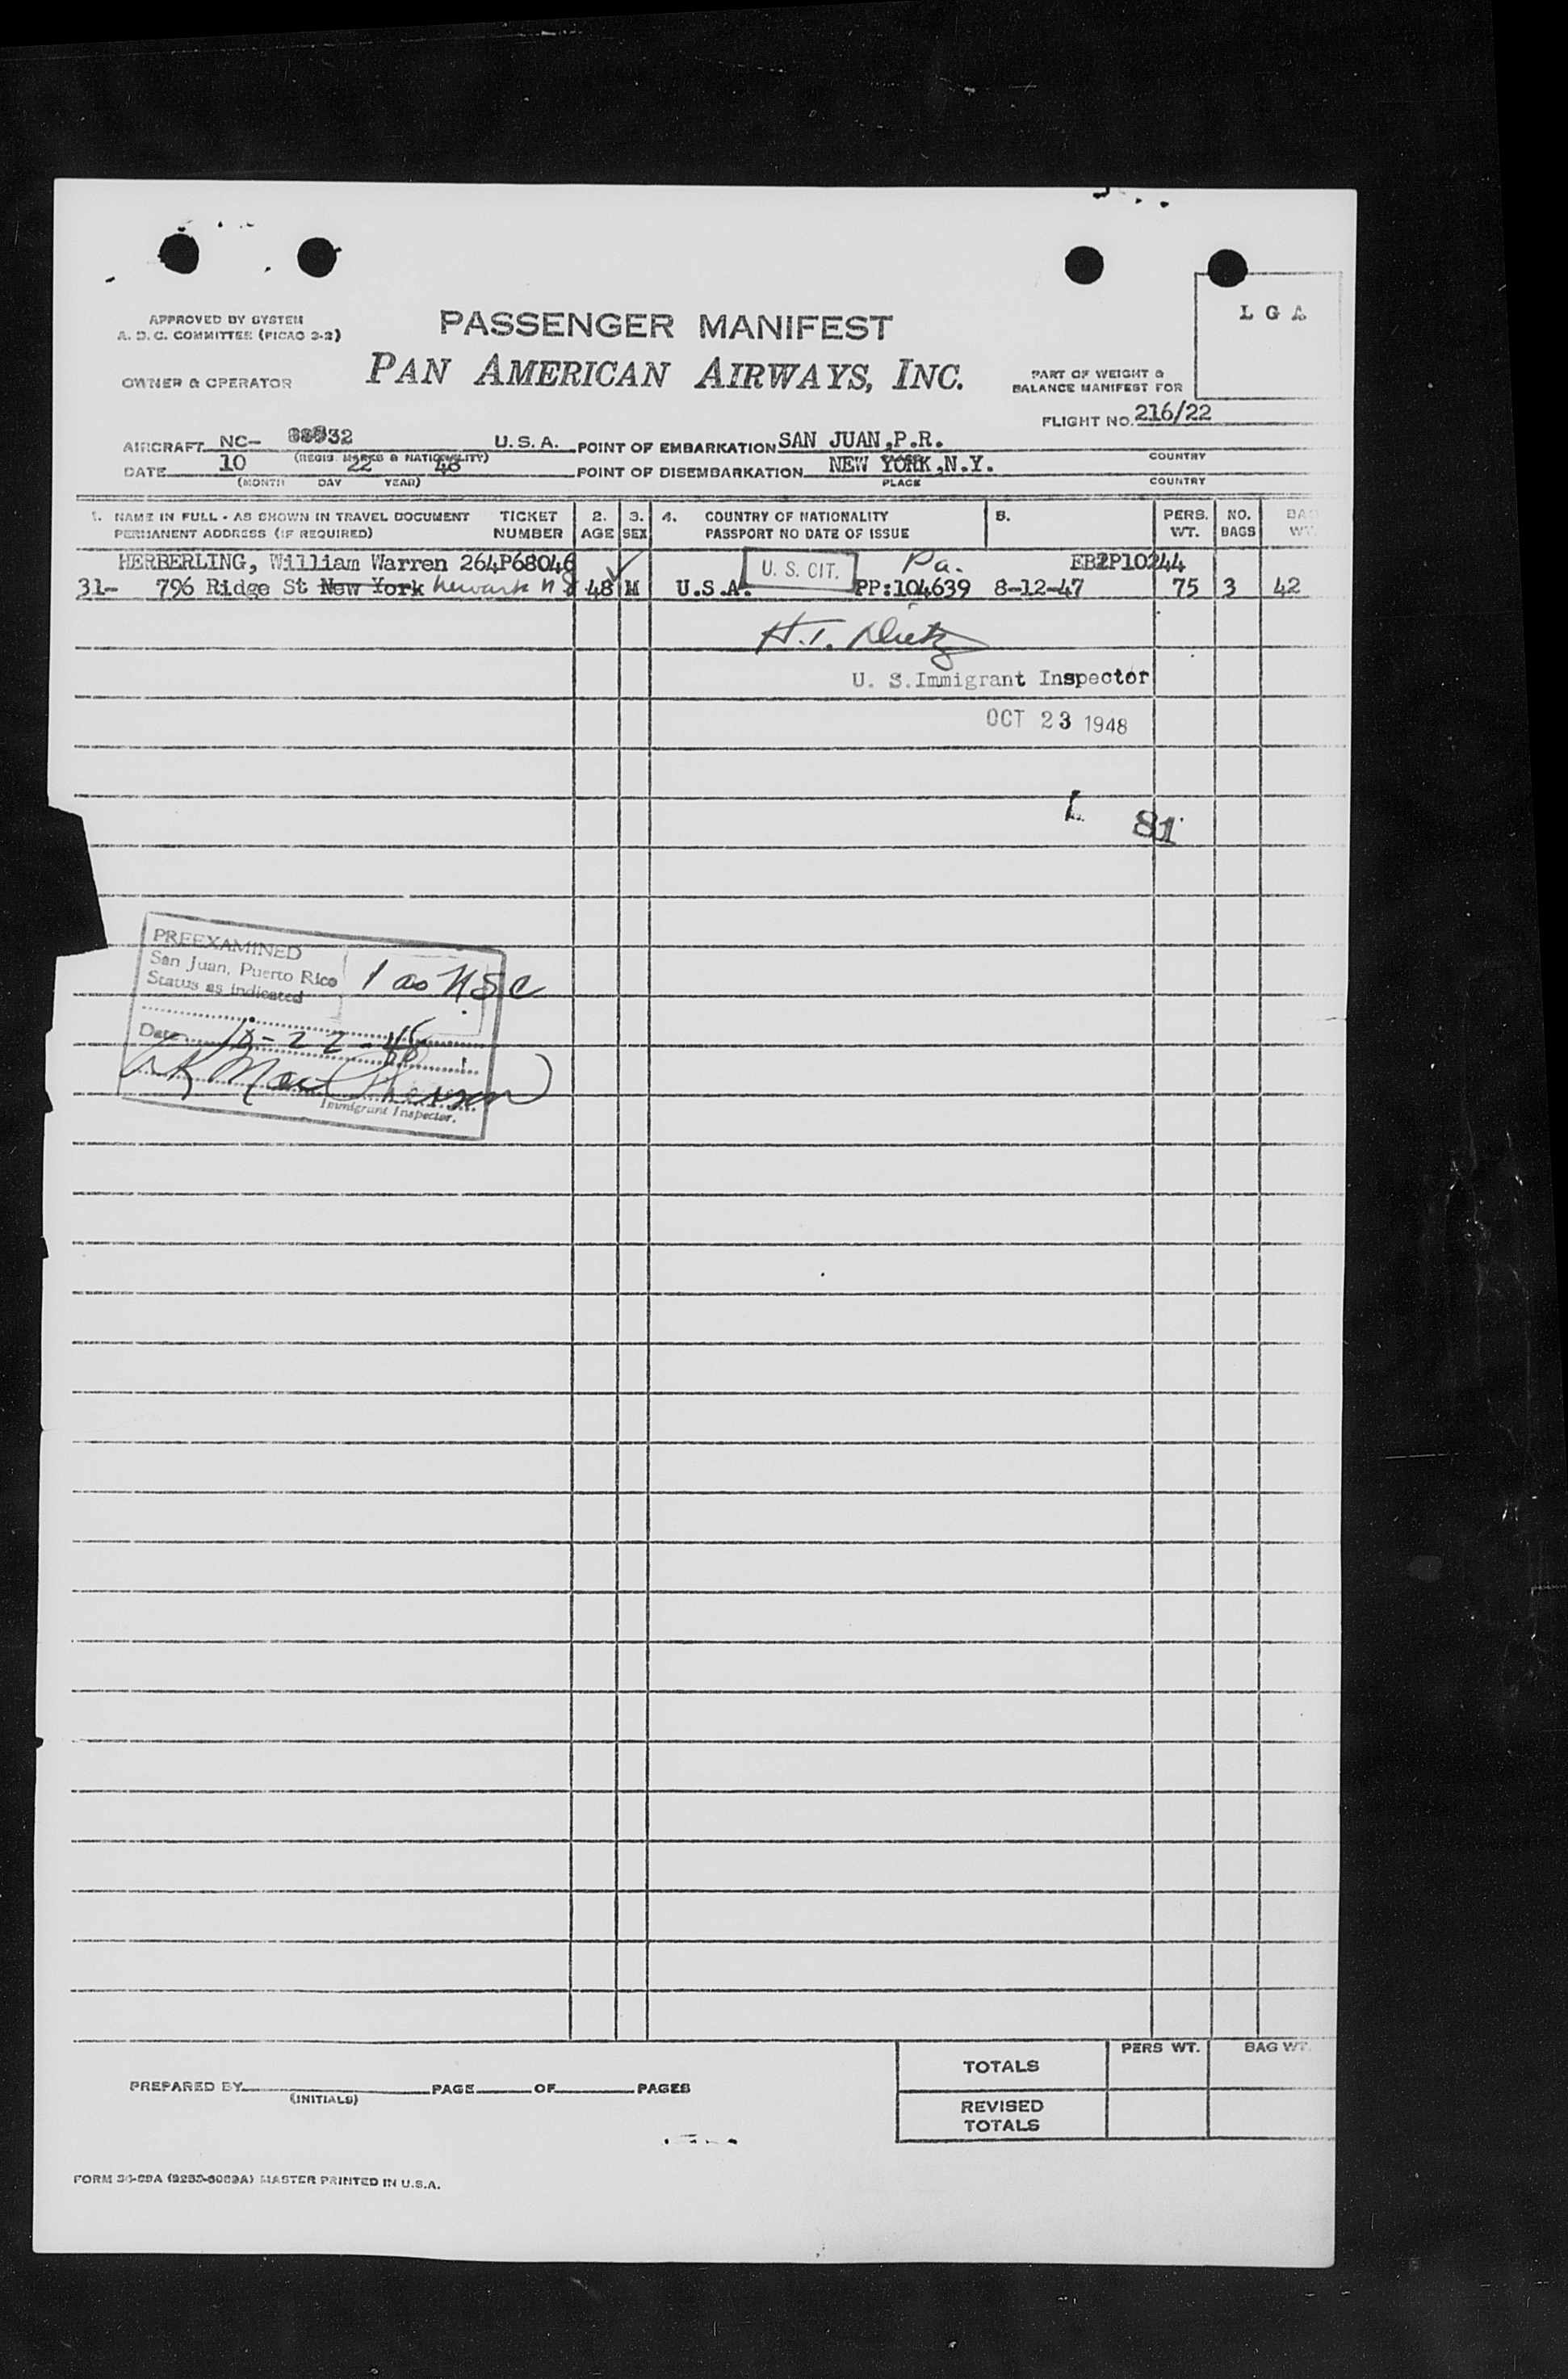 L G A
APPROVED BY SYSTEM
A. D. C. COMMITTEE (PICAO 3-2)
PASSENGER MANIFEST
OWNER & OPERATOR
PAN AMERICAN AIRWAYS, INC.
PART OF WEIGHT &
BALANCE MANIFEST FOR
FLIGHT NO. 216/22
AIRCRAFT NC- 88932 U. S. A. POINT OF EMBARKATION SAN JUAN, P.R.
(REGIS. MARKS & NATIONALITY) COUNTRY
DATE 10 22 48 POINT OF DISEMBARKATION NEW YORK, N.Y.
(MONTH DAY YEAR) PLACE COUNTRY
1. NAME IN FULL - AS SHOWN IN TRAVEL DOCUMENT TICKET 2. 3. 4. COUNTRY OF NATIONALITY 5. PERS. NO. BAG
PERMANENT ADDRESS (IF REQUIRED) NUMBER AGE SEX PASSPORT NO DATE OF ISSUE WT. BAGS WT.
HERBERLING, William Warren 264P68046 U. S. CIT. Pa. EB2P10244
31- 796 Ridge St New York Newark N J 48 M U.S.A. PP:104639 8-12-47 75 3 42
H.T.
U. S. Immigrant Inspector
OCT 23 1948
L 81
PREEXAMINED
San Juan, Puerto Rico
Status as indicated
1 as USC
Date 10-22-48
Immigrant Inspector.
TOTALS PERS WT. BAG WT.
PREPARED BY PAGE OF PAGES
(INITIALS)
REVISED
TOTALS
MASTER PRINTED IN U.S.A.